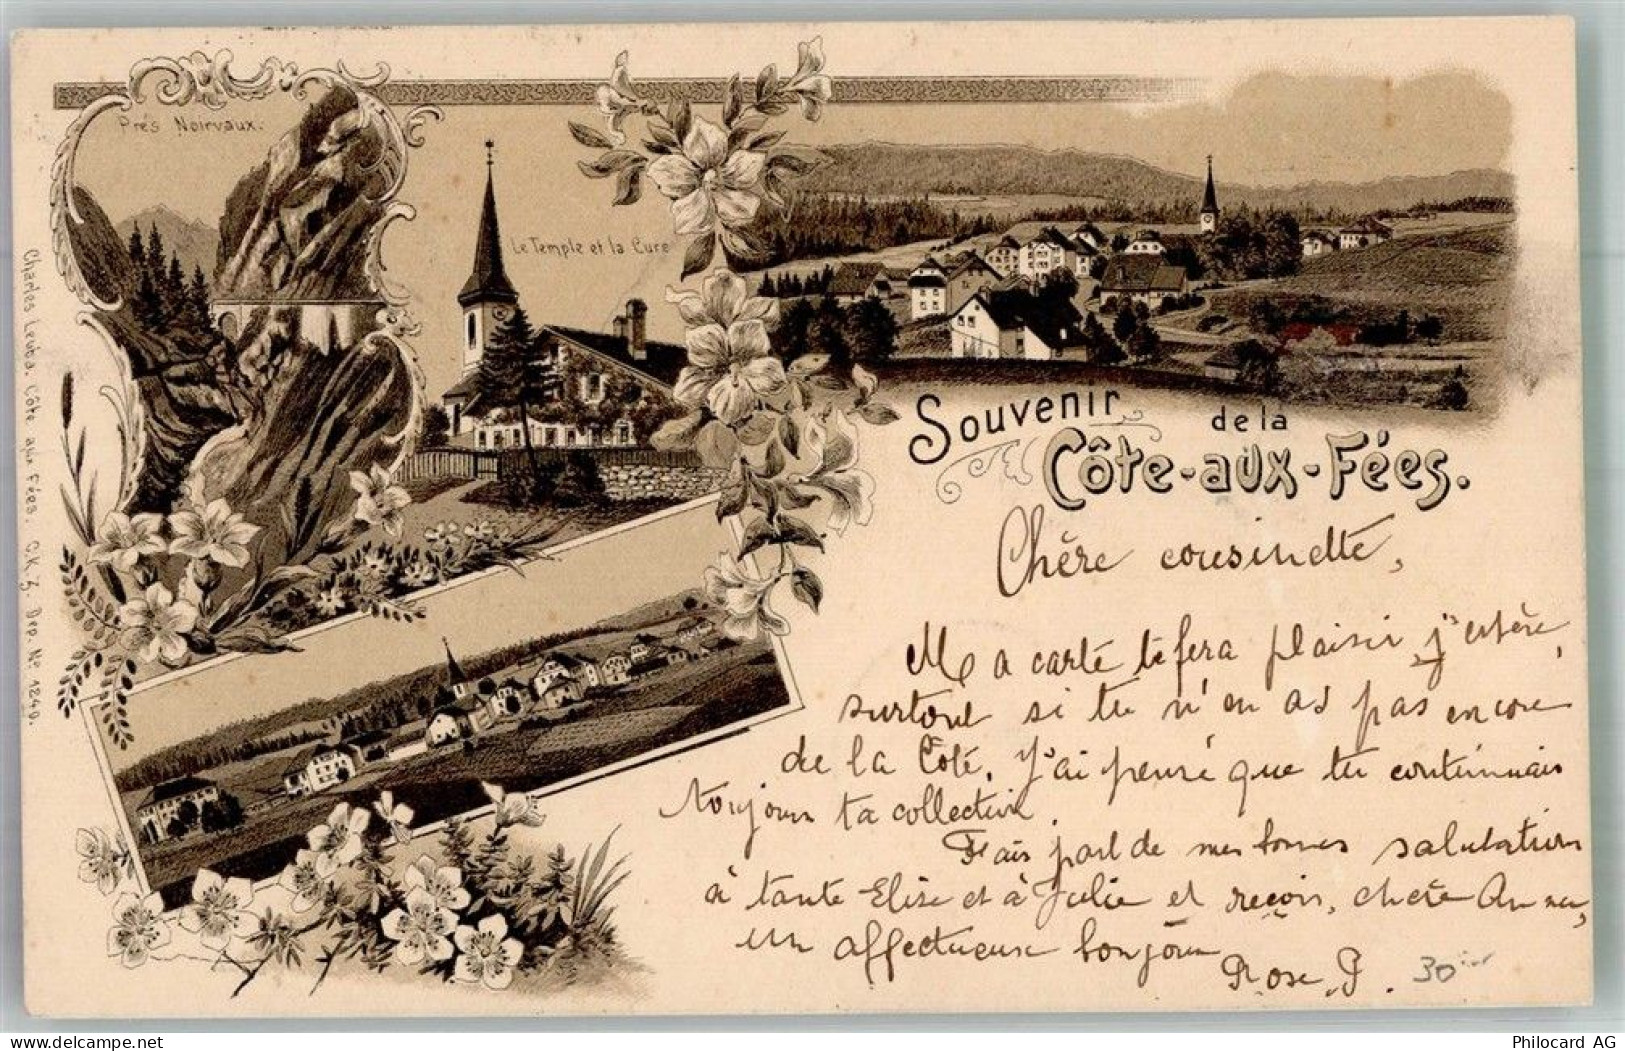 Prés Noirvaux.
Le Temple et la Cure
Charles Leuba, Côte aux Fées. C.K. Z. Dep. Nº 1240.
Souvenir de la
Côte-aux-Fées.
Chère cousinette,
Ma carte te fera plaisir j'espère,
surtout si tu n'en as pas encore
de la Côte. J'ai pensé que tu continuais
toujours ta collection.
Fais part de mes bonnes salutations
à tante Elise et à Julie et reçois, chère Anna,
un affectueux bonjour
Rose J.
30
Philocard AG